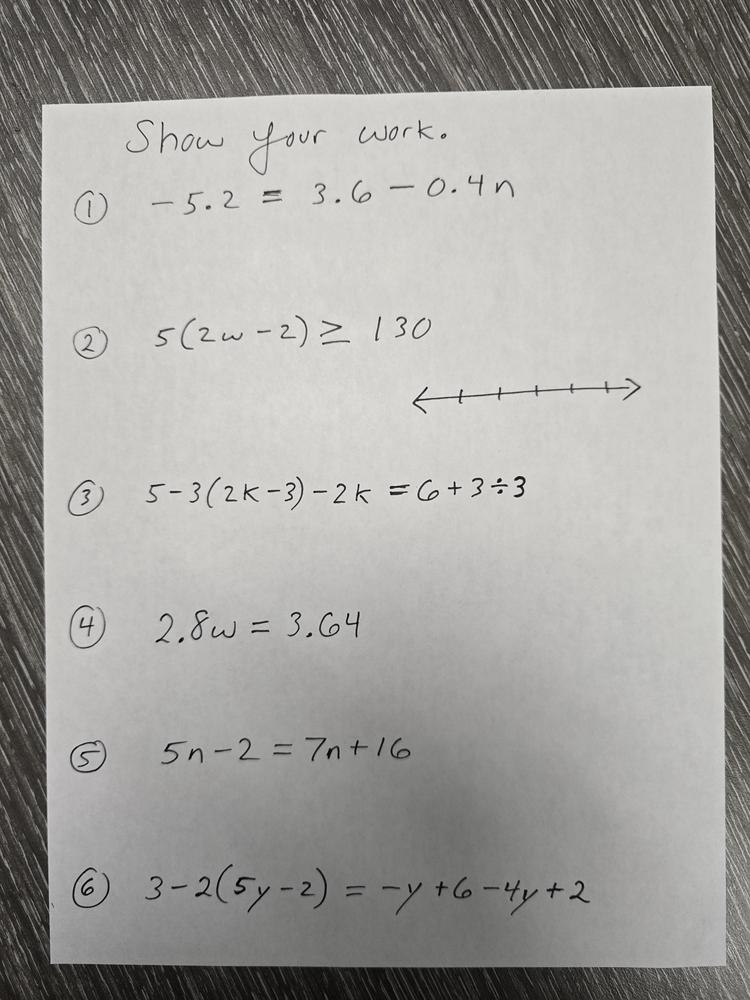 Show your work.
① -5.2 = 3.6 - 0.4n
② 5(2w-2) ≥ 130
③ 5-3(2k-3)-2k = 6+3÷3
④ 2.8w = 3.64
⑤ 5n-2 = 7n+16
⑥ 3-2(5y-2) = -y+6-4y+2